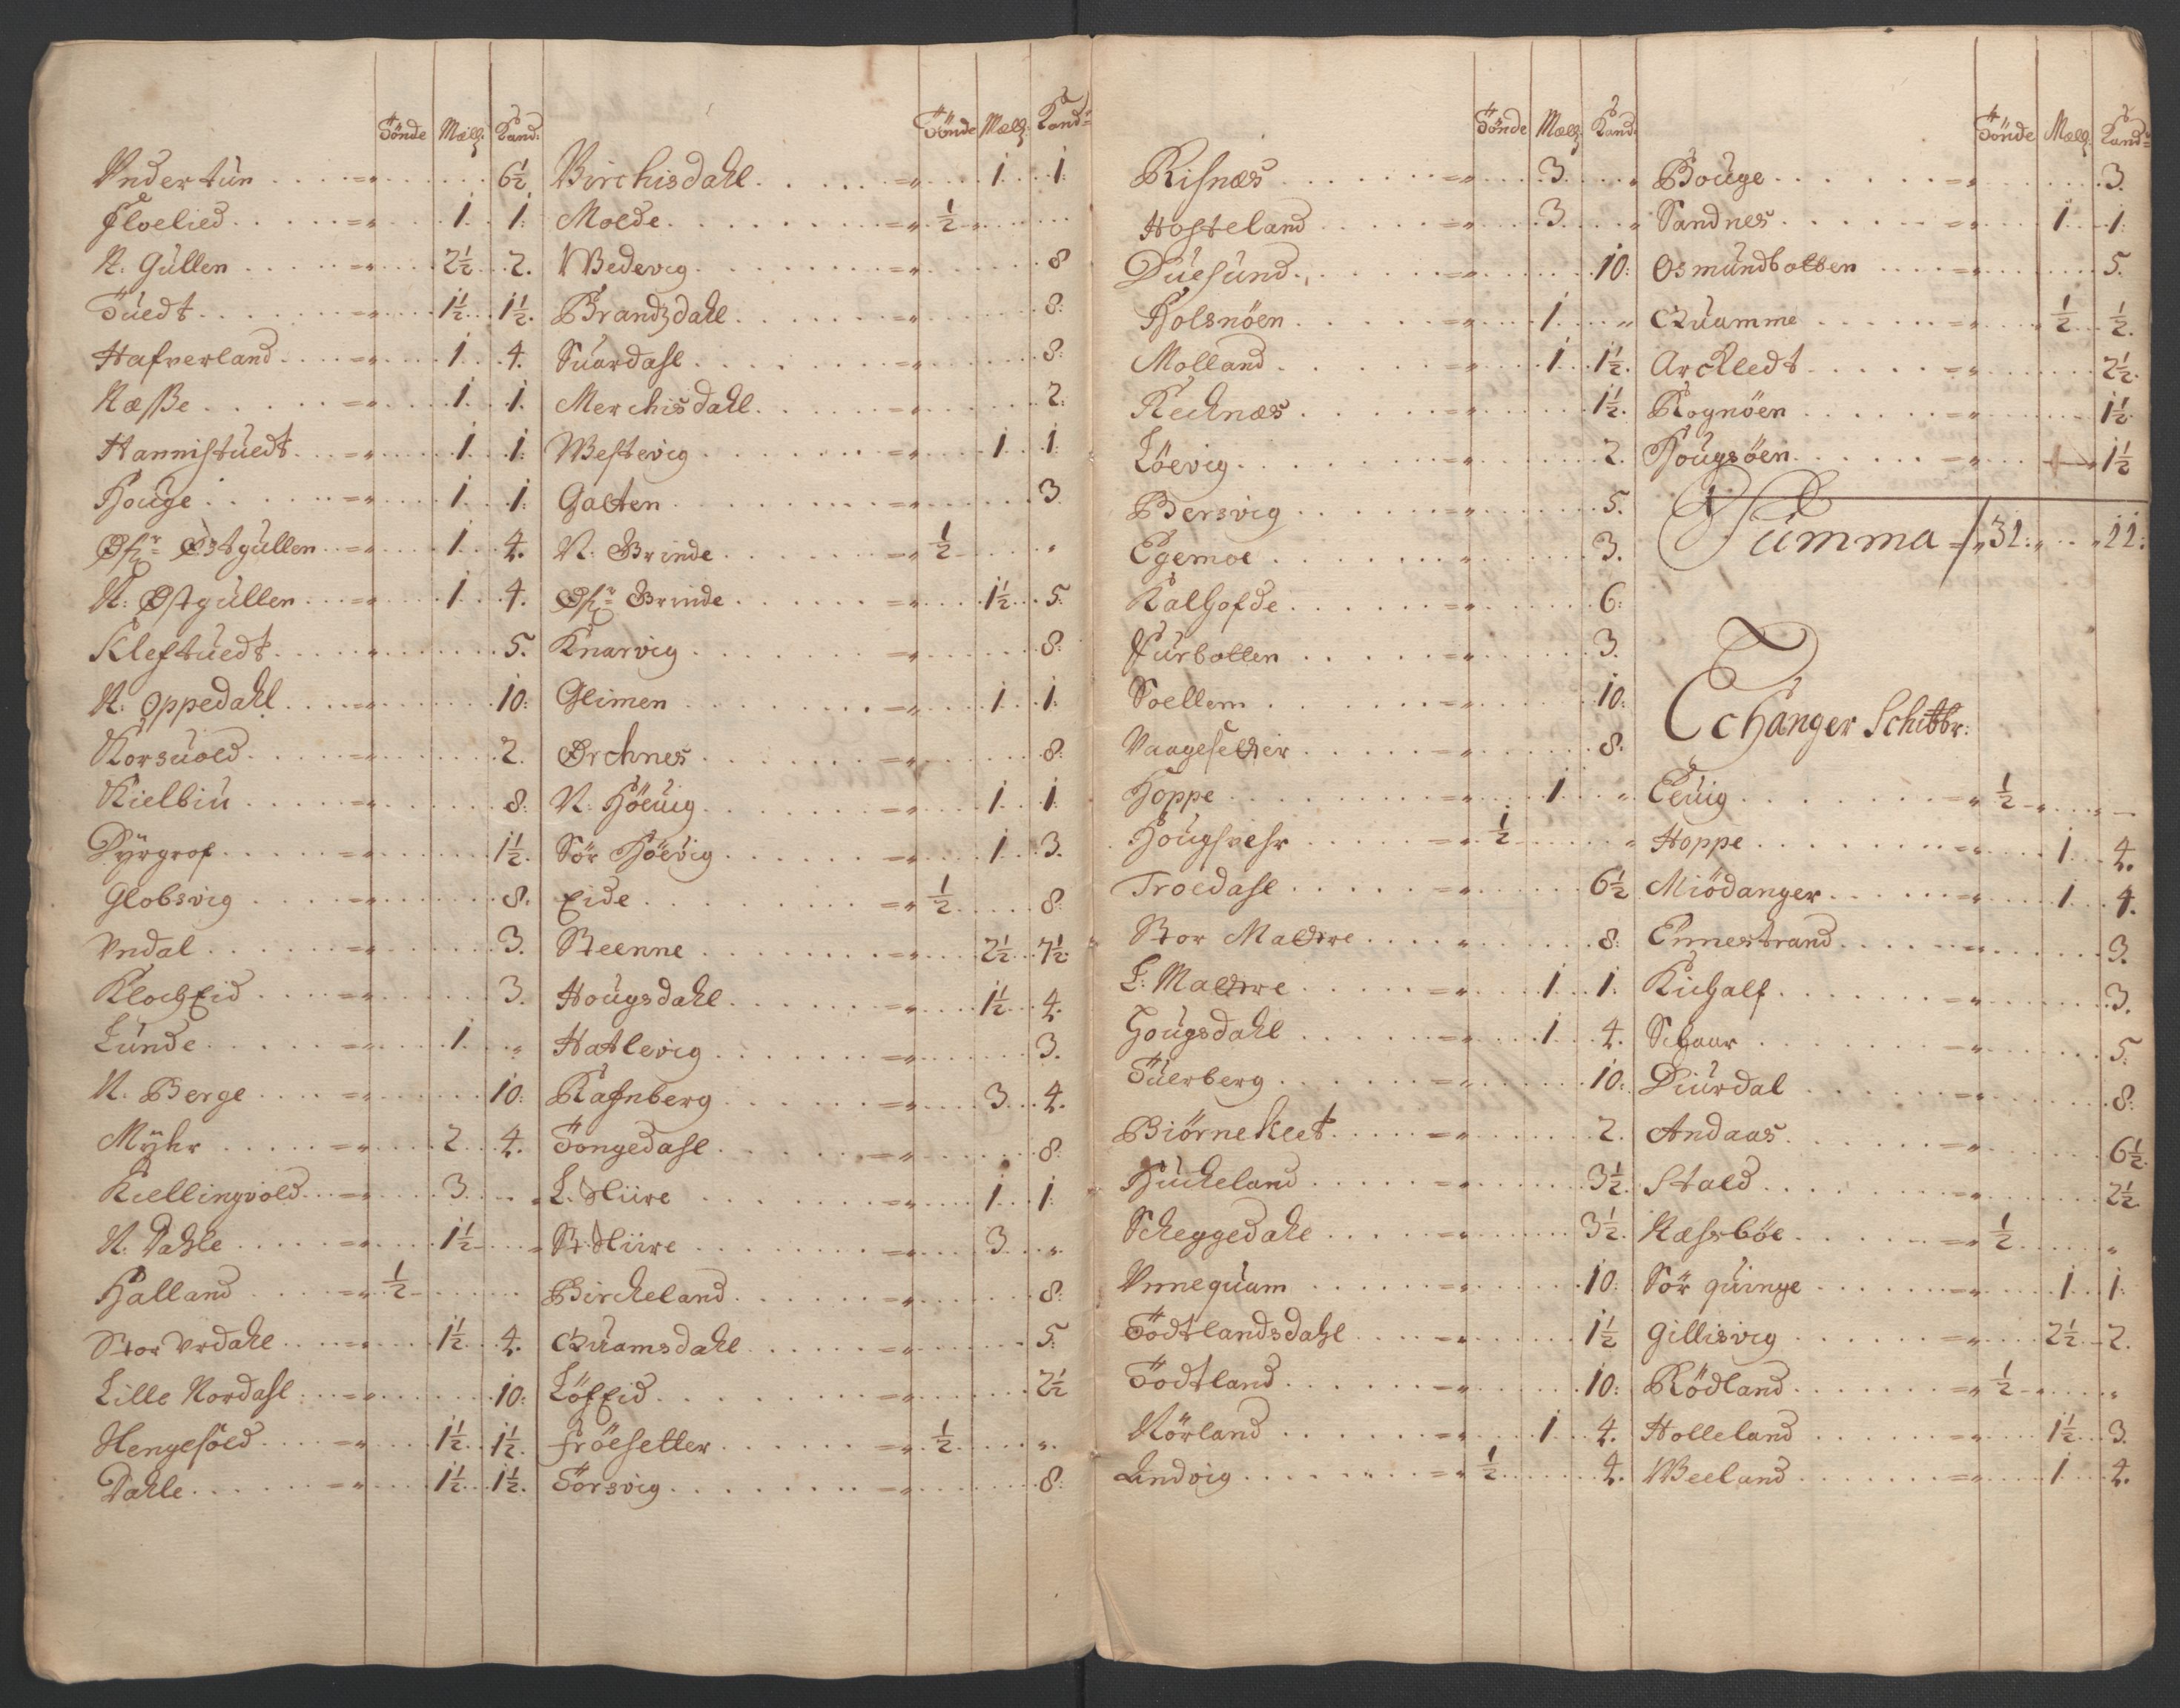 Tönde Mælß: Kand:
Undertun 6½
Floelied 1 1:
N: Gullen 2½ 2.
Tuedt 1½ 1½.
Hafverland 1 4.
Næsse 1 1.
Hannistuedt 1 1:
Houge 1 1:
Østr Østgullen 1 4.
N: Østgüllen 1 4.
Kleftuedt 5.
N: Oppedahl 10:
Korsuold 2.
Kielbiu 8:
Dyrgrof 1½.
Globsvig 8.
Undal 3.
KlochEid 3.
Lunde 1 "
N. Berge 10:
Myhr 2 4.
Kiellingvold 3 "
N. Dahle 1½ "
Halland ½
Stor Urdahl 1½ 4.
Lille Nordahl 10:
Hengesöld 1½ 1½.
Dahle 1½ 1½.
Tönde Mælß: Kand:
Birchisdahl 1 1:
Molde ½
Wedevig 8
Brandzdahl 8:
Suardahl 8:
Merchisdahl 2:
Westevig 1 1:
Galten 3
N: Brinde ½ "
Østr Brinde 1½ 5.
Knarvig 8:
Glimen 1 1:
Ørchnes 8:
N: Höeuig 1 1:
Sör Höevig 1 3.
Eide ½ 8:
Steenne 2½ 7½.
Hougsdahl 1½ 4.
Hatlevig 3.
Rafnberg 3 4.
Tongedahl 8:
L. Hiire 1 1:
St. Hiire 3 "
Bircheland 8:
Quamsdahl 5:
LöfEid 2½
Fröesetter ½ "
Torsvig 8:
Tönde Mælß: Kand:
Risnæs 3 "
Hosteland 3 "
Duesund 10:
Holsnöen 1 "
Molland 1 1½.
Recknæs 1½.
Löevig 2.
Bersvig 5.
Egemoe 3.
Kalhofde 6:
Furbotten 3.
Soellem 10:
Vaagesetter 8.
Hoppe 1 "
Hougsvehr ½ "
Troedahl 6½
Stor Matre 8:
L: Matre 1 1:
Hougsdahl 1 4.
Tuerberg 10:
Biörneklet 2.
Hucheland 3½.
Scheggedahl 3½.
Unnequam 10:
Todtlandsdahl 1½
Todtland 10:
Nörland 1 4.
Lindvig ½ 4.
Tönde Mælß: Kand:
Bouge 3.
Sandnes 1 1:
Osmundbotten 5.
Quamme ½ ½.
Arckledt 2½.
Rognöen 1½.
Hougsöen 1½
Summa 31: " 11:
Echanger Schibbr:
Eeuig ½ " —
Hoppe 1 4.
Miödanger 1 4.
Ennestrand 3.
Kiehalf 3.
Schaar 5:
Diurdal 8:
Andaas 6½.
Stald 2½.
Næssböe ½ "
Sör quinge 1 1:
Gillisvig 2½ 2.
Rödland ½ "
Holleland 1½ 3.
Weeland 1 4.